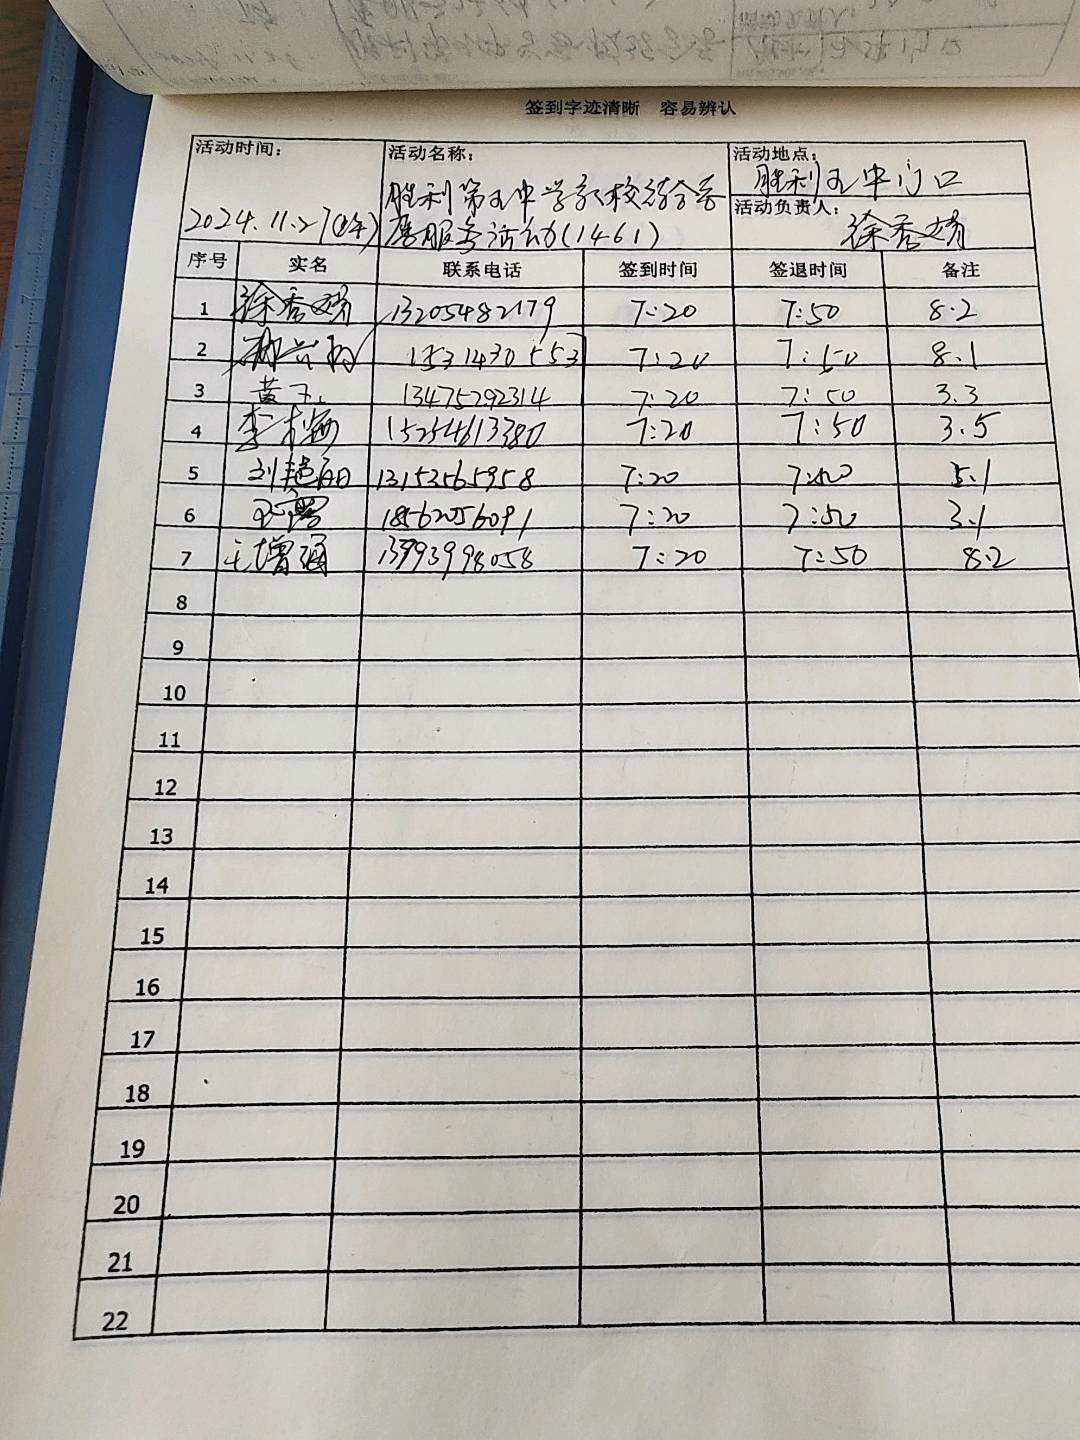 签到字迹清晰 容易辨认
活动时间: 活动名称: 活动地点:
胜利五中门口
胜利第五中学家校综合
2024.11.27 服务活动(1461) 活动负责人: 徐秀娟
序号 实名 联系电话 签到时间 签退时间 备注
1 徐秀娟 13205482179 7:20 7:50 8.2
2 15314301553 7:20 7:50 8.1
3 黄 13475292314 7:20 7:50 3.3
4 李梅 15254613380 7:20 7:50 3.5
5 刘艳丽 13153565958 7:20 7:50 5.1
6 18562056091 7:20 7:50 3.1
7 王增涌 13793998058 7:20 7:50 8.2
8
9
10
11
12
13
14
15
16
17
18
19
20
21
22